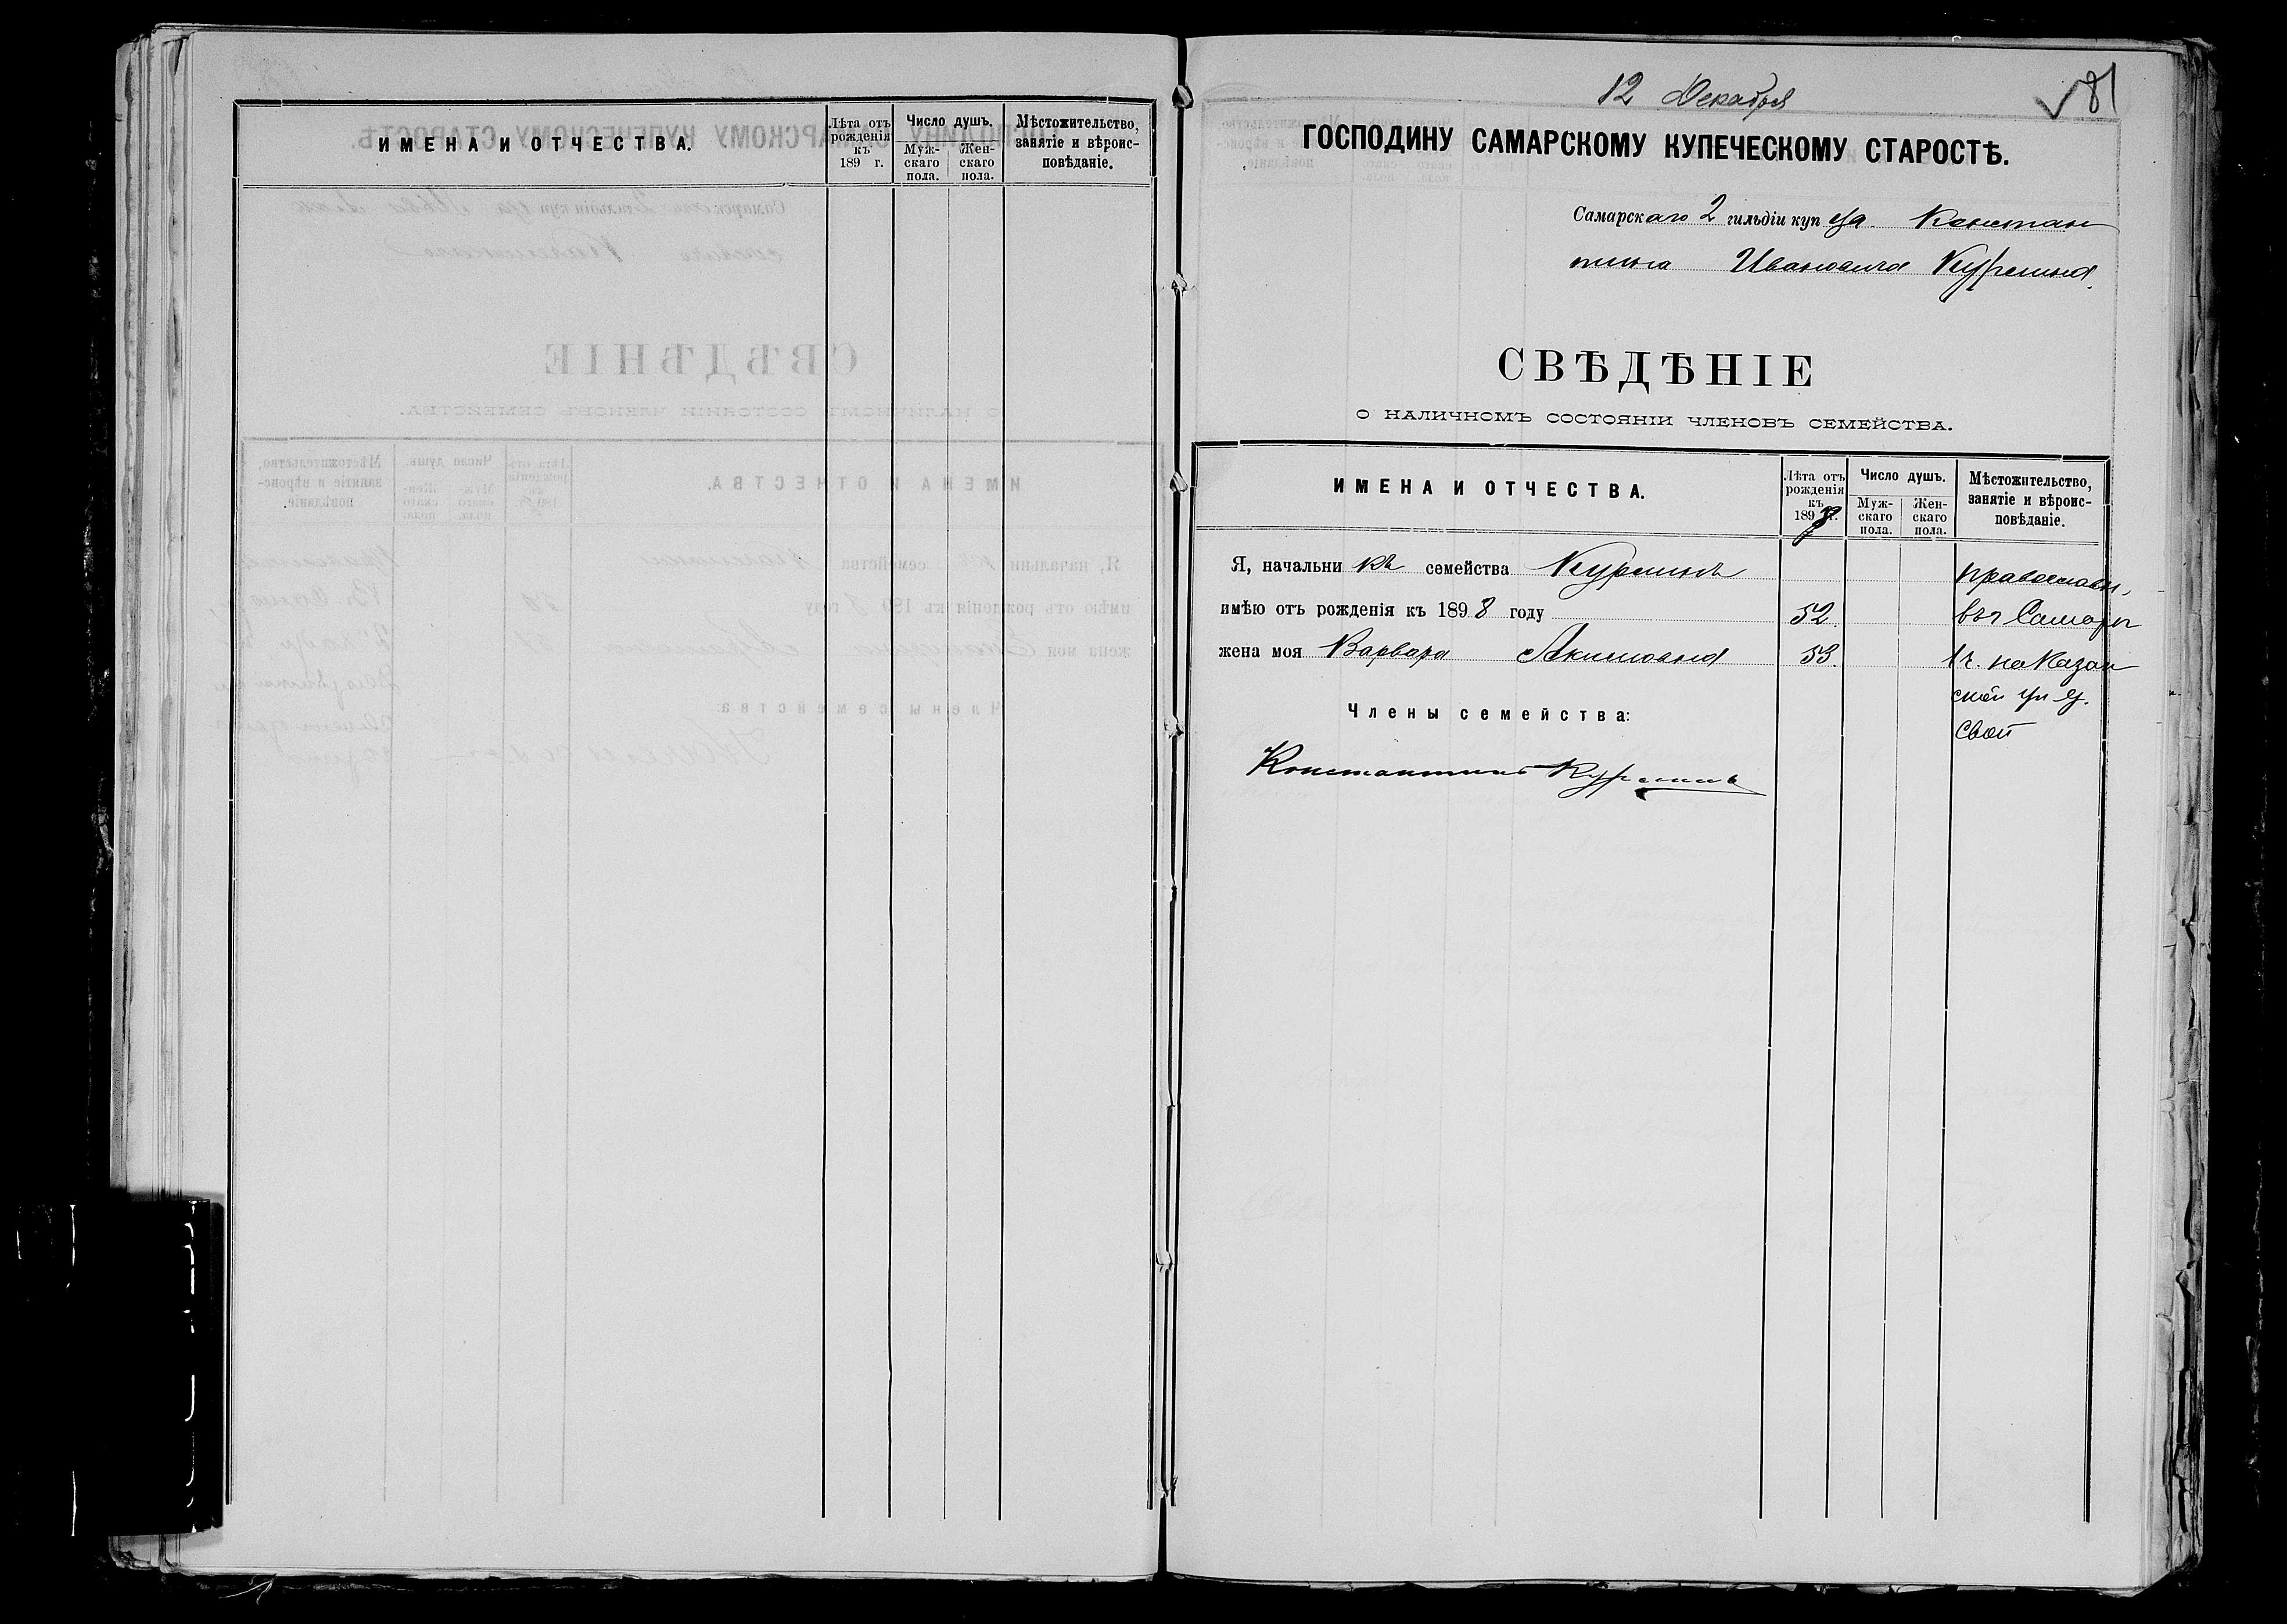 ИМЕНА И ОТЧЕСТВА.
Лѣта отъ рожденія къ 189 г.
Число душъ.
Муж-скаго пола.
Жен-скаго пола.
Мѣстожительство, занятіе и вѣроис-повѣданіе.
12 Декабря
81
ГОСПОДИНУ САМАРСКОМУ КУПЕЧЕСКОМУ СТАРОСТѢ.
Самарскаго 2 гильдіи купца Констан
тина Ивановича Курлина.
СВѢДѢНІЕ
О НАЛИЧНОМЪ СОСТОЯНІИ ЧЛЕНОВЪ СЕМЕЙСТВА.
ИМЕНА И ОТЧЕСТВА.
Лѣта отъ рожденія къ 1898 г.
Число душъ.
Муж-скаго пола.
Жен-скаго пола.
Мѣстожительство, занятіе и вѣроис-повѣданіе.
Я, начальникъ семейства Курлинъ православн,
имѣю отъ рожденія къ 1898 году 52. въ Самарѣ
жена моя Варвара Акимовна 53. 1 ч. на Казан
ской ул.
Члены семейства:
свой
Константинъ Курлинъ